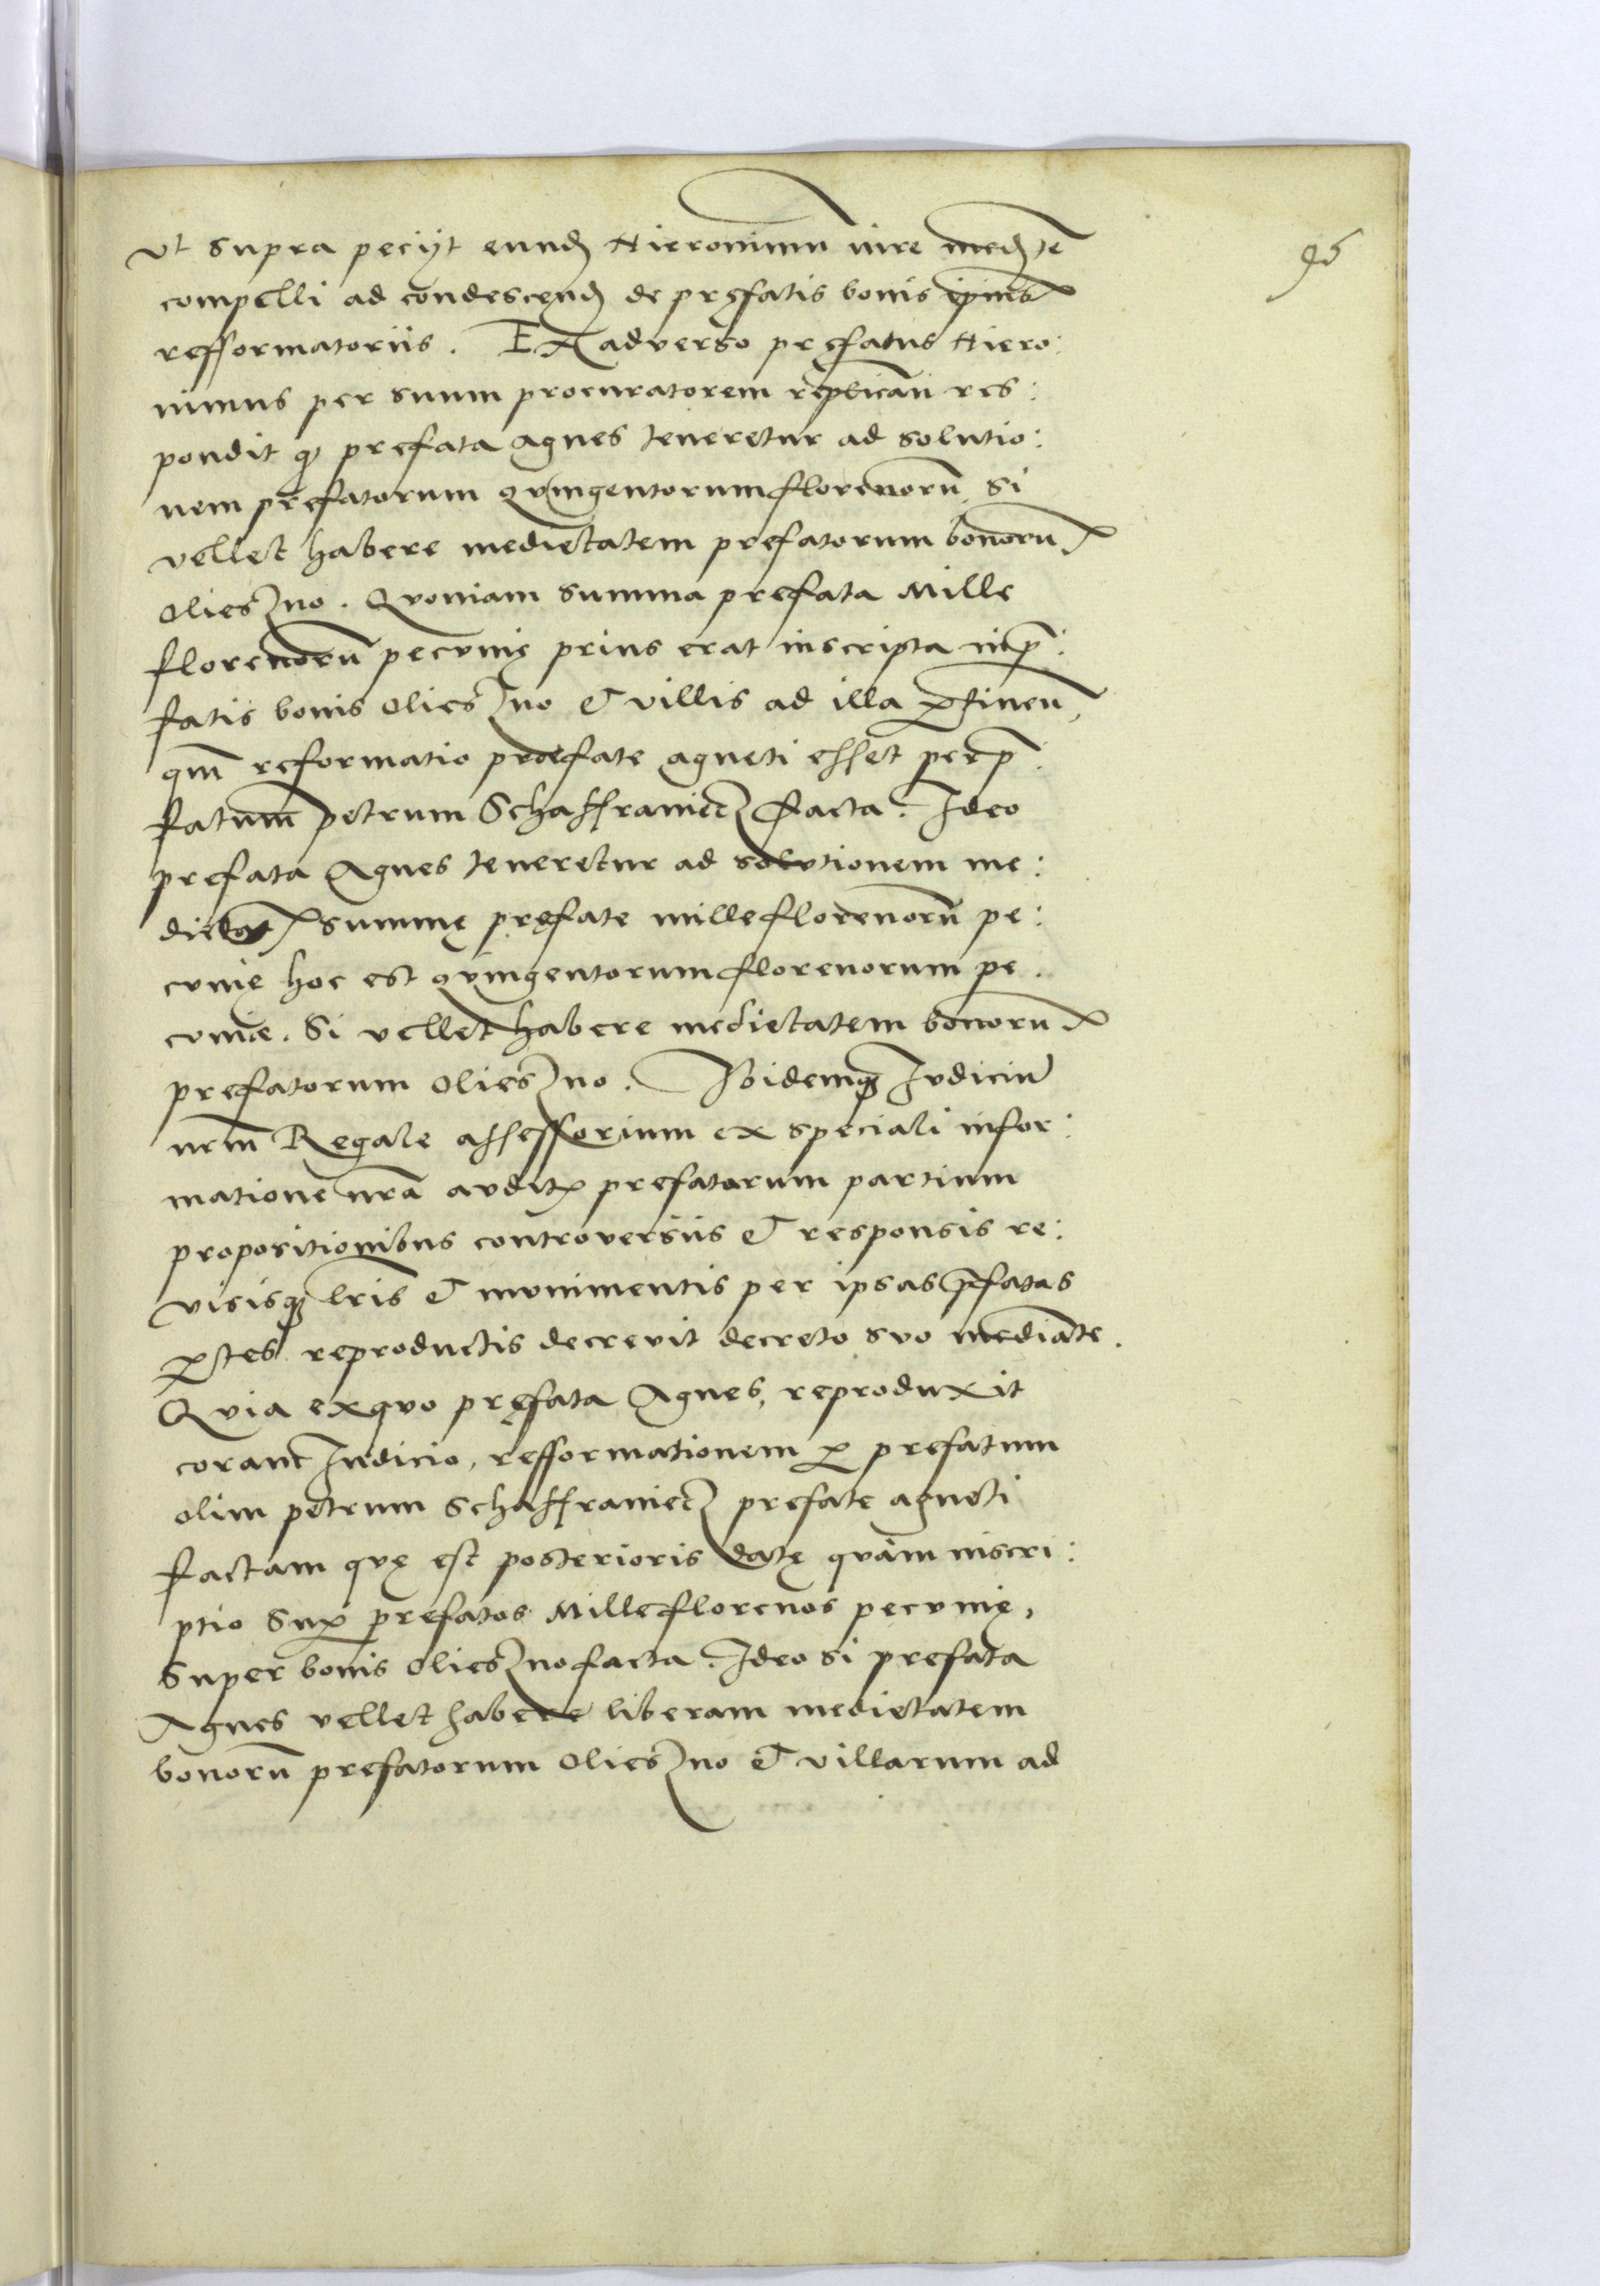 95
Vt supra peciyt eund Hieronimu iure med te
compelli ad condescend de pręfatis bonis ipius
refformatoriis. Ex adverso pręfatus Hiero:
nimus per suum procuratorem replican res:
pondit q prefata Agnes teneretur ad solutio:
nem prefatorum qvingentorum florenorū si
vellet habere medietatem prefatorum bonoru
Olieszno. Qvoniam summa prefata Mille
florenorū pecvnię prius erat inscripta in p̄:
fatis bonis Olieszno & villis ad illa ptinen,
qm̄ reformatio prefate Agneti esset per p̄:
fatum petrum Schaffraniecz facta. Ideo
prefata Agnes teneretur ad solvtionem me:
dietat summę pręfate mille florenorū pe:
cvnię hoc est qvingentorum florenorum pe.
cvnie. Si vellet habere medietatem bonoru
prefatorum Olieszno. Ibidemq Ivdiciū
nrm̄ Regale assessorium ex speciali infor:
matione nrā avdit prefatarum partium
propositionibus controversiis & responsis re:
visisq lris & monimentis per ipsas p̄fatas
ptes reproductis decrevit decreto svo mediāte.
Qvia exqvo pręfata Agnes, reproduxit
coram Iudicio, refformationem p prefatum
olim petrum Schaffraniecz prefate Agneti
factam qvę est posterioris datę qvàm inscri:
ptio Sup prefatos Mille florenos pecvnię,
Super bonis Olieszno facta. Ideo si prefata
Agnes vellet habere liberam medietatem
bonorū prefatorum Olieszno & villarum ad